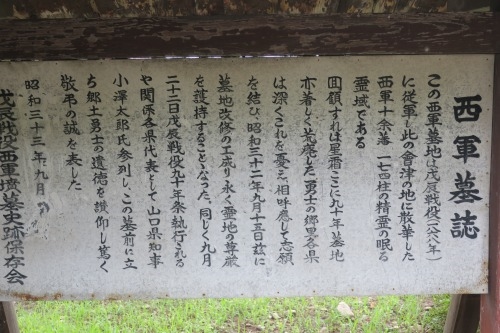 西軍墓誌
この西軍墓地は戊辰戦役(一八六八年)
に従軍し此の會津の地に散華した
西軍十余落 一七四柱の精霊の眠る
霊域である
回顧すれば星霜ここに九十年墓地
亦著しく荒廃した 勇士の郷里各県
は深くこれを憂え相呼應して志願
を結び 昭和三十二年九月十五日茲に
墓地改修の工成り永く霊地の尊厳
を護持することゝなった 同じく九月
二十二日戊辰戦役九十年祭執行される
や関係各県代表として山口県知事
小澤太郎氏参列し、この墓前に立
ち郷土勇士の遺徳を讃仰し篤く
敬弔の誠を表した
昭和三十三年九月
戊辰戦役西軍墳墓史跡保存会